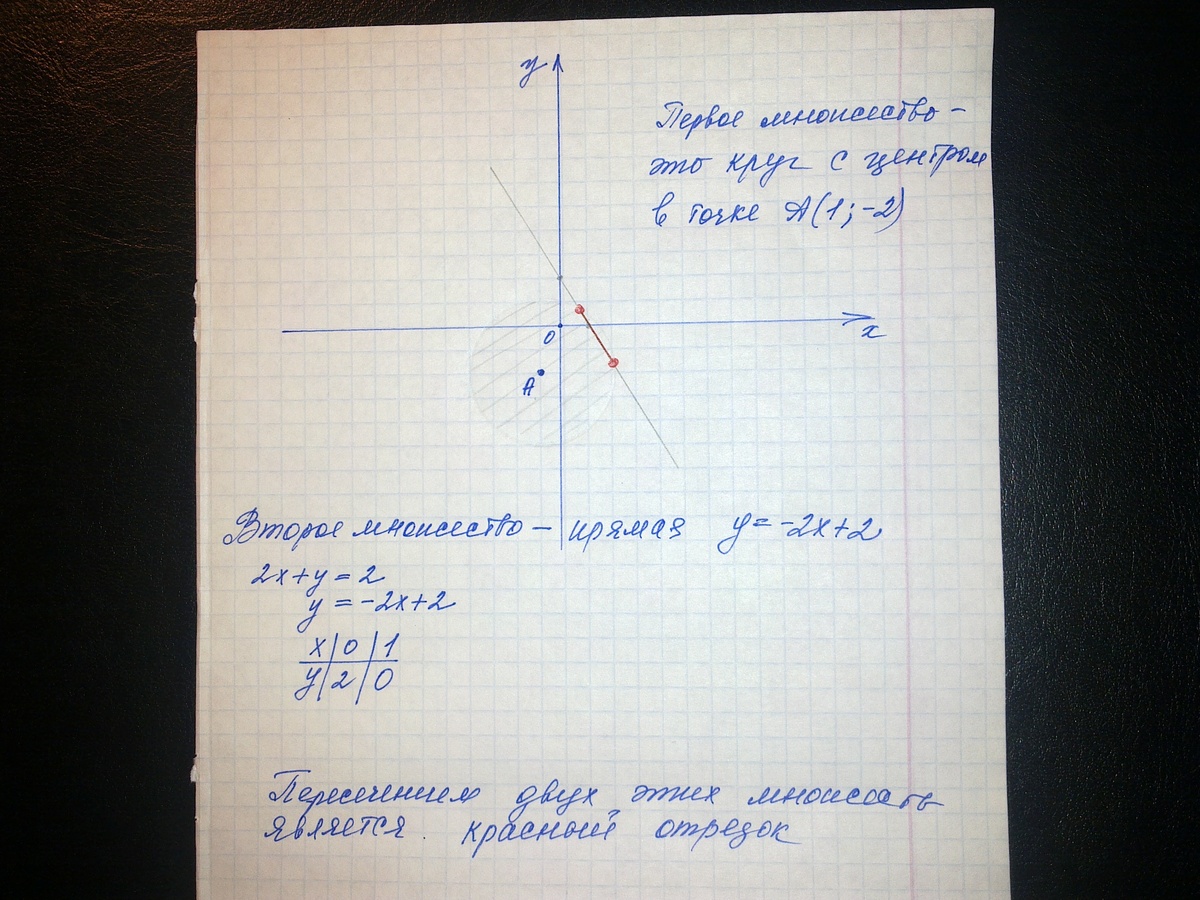 y
Первое множество -
это круг с центром
в точке A(1; -2)
0
x
A
Второе множество - прямая y = -2x+2
2x+y = 2
y = -2x+2
x | 0 | 1
y | 2 | 0
Пересечением двух этих множеств
является красный отрезок